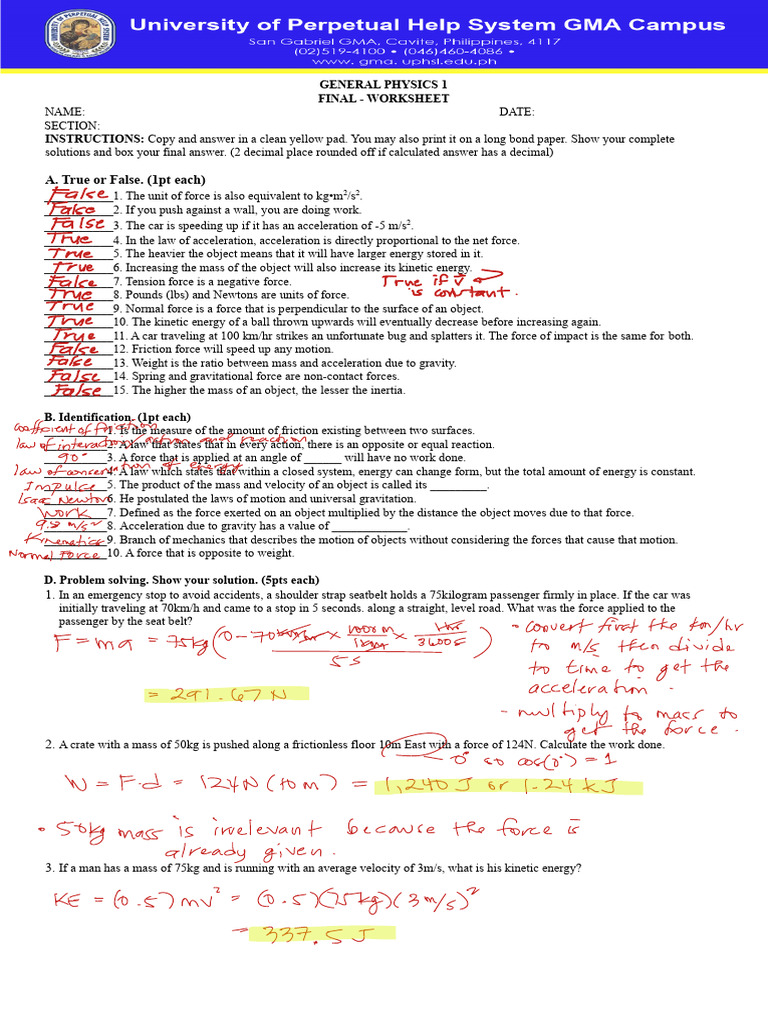 University of Perpetual Help System GMA Campus
San Gabriel GMA, Cavite, Philippines, 4117
(02)519-4100 • (046)460-4086 •
www. gma. uphsl.edu.ph
GENERAL PHYSICS 1
FINAL - WORKSHEET
NAME: DATE:
SECTION:
INSTRUCTIONS: Copy and answer in a clean yellow pad. You may also print it on a long bond paper. Show your complete
solutions and box your final answer. (2 decimal place rounded off if calculated answer has a decimal)
A. True or False. (1pt each)
False 1. The unit of force is also equivalent to kg•m²/s².
False 2. If you push against a wall, you are doing work.
False 3. The car is speeding up if it has an acceleration of -5 m/s².
True 4. In the law of acceleration, acceleration is directly proportional to the net force.
True 5. The heavier the object means that it will have larger energy stored in it.
True 6. Increasing the mass of the object will also increase its kinetic energy.
False 7. Tension force is a negative force. True if v̄
True 8. Pounds (lbs) and Newtons are units of force. is constant.
True 9. Normal force is a force that is perpendicular to the surface of an object.
True 10. The kinetic energy of a ball thrown upwards will eventually decrease before increasing again.
True 11. A car traveling at 100 km/hr strikes an unfortunate bug and splatters it. The force of impact is the same for both.
False 12. Friction force will speed up any motion.
False 13. Weight is the ratio between mass and acceleration due to gravity.
False 14. Spring and gravitational force are non-contact forces.
False 15. The higher the mass of an object, the lesser the inertia.
B. Identification. (1pt each)
coefficient of friction 1. Is the measure of the amount of friction existing between two surfaces.
law of interaction action and reaction 2. A law that states that in every action, there is an opposite or equal reaction.
90° 3. A force that is applied at an angle of ______ will have no work done.
law of conservation of energy 4. A law which states that within a closed system, energy can change form, but the total amount of energy is constant.
Impulse 5. The product of the mass and velocity of an object is called its _________.
Isaac Newton 6. He postulated the laws of motion and universal gravitation.
Work 7. Defined as the force exerted on an object multiplied by the distance the object moves due to that force.
9.8 m/s² 8. Acceleration due to gravity has a value of ____________.
Kinematics 9. Branch of mechanics that describes the motion of objects without considering the forces that cause that motion.
Normal Force 10. A force that is opposite to weight.
D. Problem solving. Show your solution. (5pts each)
1. In an emergency stop to avoid accidents, a shoulder strap seatbelt holds a 75kilogram passenger firmly in place. If the car was
initially traveling at 70km/h and came to a stop in 5 seconds. along a straight, level road. What was the force applied to the
passenger by the seat belt?
F = ma = 75kg (0 - 70 km/hr × 1000m/1km × 1hr/3600s / 5s)
= 291.67 N
• convert first the km/hr
to m/s then divide
to time to get the
acceleration.
- multiply to mass to
get the force.
2. A crate with a mass of 50kg is pushed along a frictionless floor 10m East with a force of 124N. Calculate the work done.
0° so cos(0°) = 1
W = F·d = 124N (10m) = 1,240 J or 1.24 kJ
• 50kg mass is irrelevant because the force is
already given.
3. If a man has a mass of 75kg and is running with an average velocity of 3m/s, what is his kinetic energy?
KE = (0.5) mv² = (0.5)(75kg)(3 m/s)²
= 337.5 J